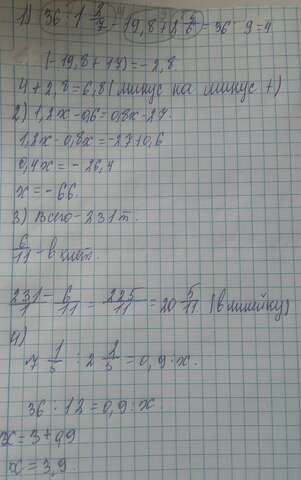 1) 36 : 1 2/7 - 19,8 + 2 2/6 = 36 : 9 = 4
(-19,8 + 17) = - 2,8
4 + 2,8 = 6,8 (минус на минус +)
2) 1,2x - 0,6 = 0,8x - 27.
1,2x - 0,8x = -27 + 0,6
0,4x = - 26,4
x = - 66.
3) Всего - 231 т.
6/11 - в клет.
231/1 - 6/11 = 225/11 = 20 5/11 (в линейку)
4)
7 1/5 : 2 2/5 = 0,9 · x.
36 : 12 = 0,9 · x.
x = 3 + 0,9
x = 3,9.